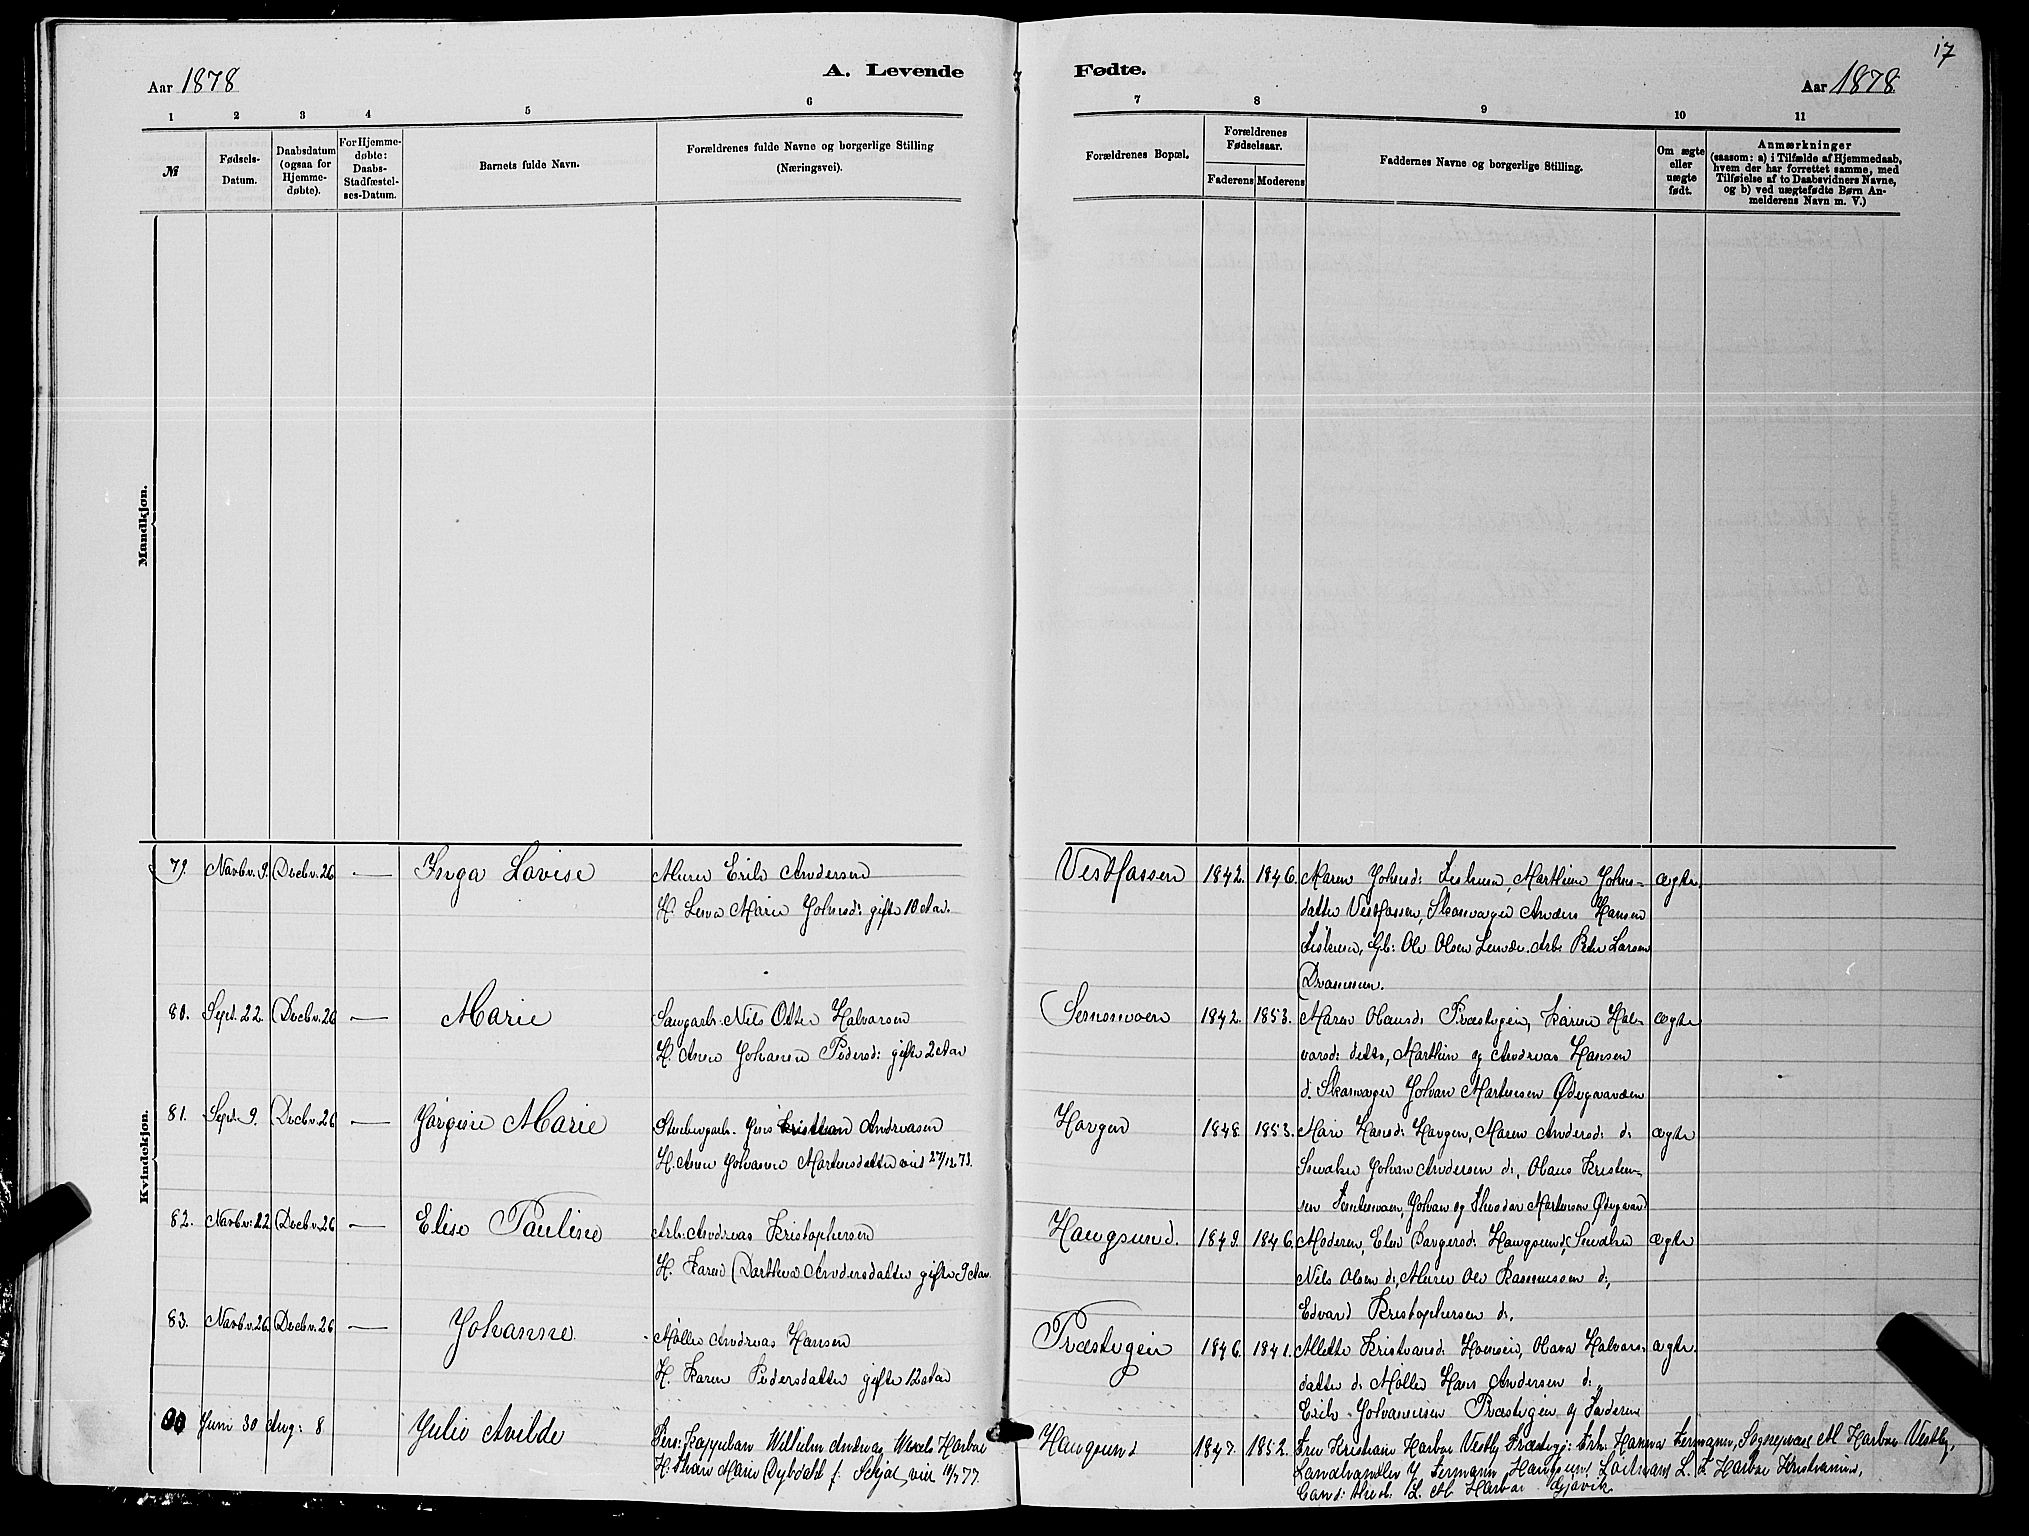 17
Aar 1878
A. Levende
Fødte.
Aar 1878
1 2 3 4 5 6 7 8 9 10 11
№
Fødsels-
Datum.
Daabsdatum
(ogsaa for
Hjemme-
døbte).
For Hjemme-
døbte:
Daabs-
Stadfæstel-
ses-Datum.
Barnets fulde Navn.
Forældrenes fulde Navne og borgerlige Stilling
(Næringsvei).
Forældrenes Bopæl.
Forældrenes
Fødselsaar.
Faderens Moderens
Faddernes Navne og borgerlige Stilling.
Om ægte
eller
uægte
født.
Anmærkninger
(saasom: a) i Tilfælde af Hjemmedaab,
hvem der har forrettet samme, med
Tilføielse af to Daabsvidners Navne,
og b) ved uægtefødte Børn An-
melderens Navn m. V.)
Mandkjøn.
Kvindekjøn.
79. Novbr. 9. Decbr. 26 — Inga Lovise Murer Erik Andersen Vestfossen 1842. 1846. Maren Johnsd: Marthine Johns- ægte.
H. Marie Johnsd: gifte 10 Aar. datter Vestfossen, Anders Hansen
Gb: Ole Olsen Arb. Peder Larsen
80. Sept. 22. Decbr. 26 — Marie Saugarb. Nils Otter Halvorsen 1842. 1853. Maren Olausd: Præstegen, Karen Hal- ægte
H. Anne Johanne Pedersd: gifte 2 Aar vorsd: ditto, Marthin og Andreas Hansen
d. Johan Martinsen Ødegaarden
81. Sept. 9. Decbr. 26 — Jørgine Marie Jens Kristian Andreasen Horgen 1848. 1853. Mari Hansd: Horgen, Maren Andersd: d: ægte
H. Anne Johanne Martinsdatter viet 27/12 73. Snedker Johan Andersen d:, Olaus Kristen-
sen Johan og Theodor Martinsen Ødegaard
82. Novbr. 22 Decbr. 26 — Elise Pauline Arb. Andreas Kristophersen Haugsund. 1849. 1846. Moderen, Elen Haugsund, Snedker ægte
H. Karen Dorthea Andersdatter gifte 9 Aar. Nils Olsen d:, Murer Ole Rasmussen d:,
Edvard Kristophersen d:.
83. Novbr. 26. Decbr. 26 — Johanne Møller Andreas Hansen Præstegen 1846. 1841. Alette Kristiansd: Olava Halvors- ægte.
H. Karen Pedersdatter gifte 12 Aar datter d: Møller Hans Andersen d:,
Erik Johannesen Præstegen og Faderen
Juni 30 Aug: 8 Julie Avilde Pers: Kappelan Wilhelm Andreas Wexels Harboe Haugsund 1847. 1852. Fru Kristiane Harboe Vestby Præstegj: Frk. Hanna Fermann, Sognepræst M. Harboe Vestby,
H. Marie Dybdahl f. viet 10/7 77. Landhandler J. Fermann Haugsund, L. F. Harboe Kristiania,
Cand: Med: L. M. Harboe Gjøvik